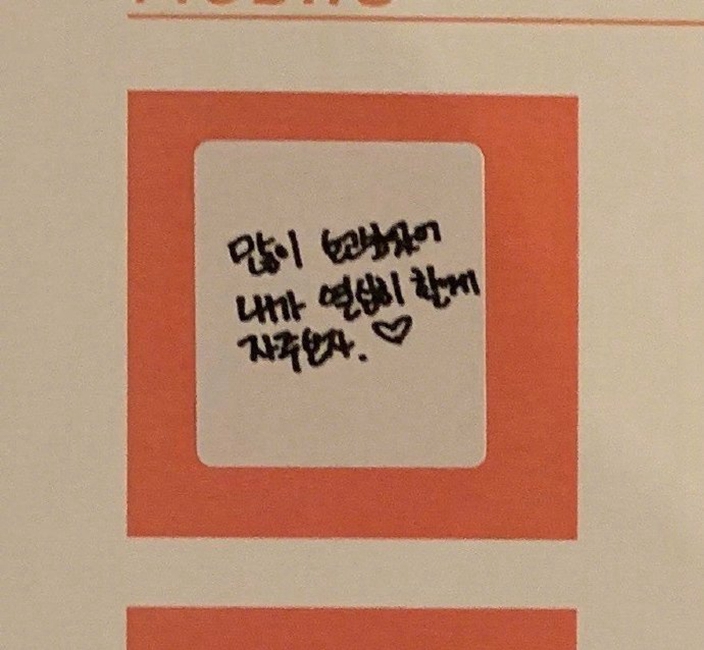 많이 보고싶었어
내가 열심히 할게
자주보자. ♡